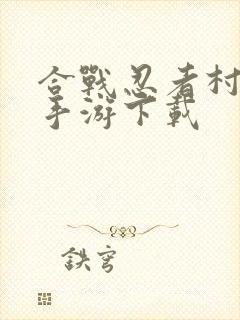 合戰忍者村
手游下載
鉄穹